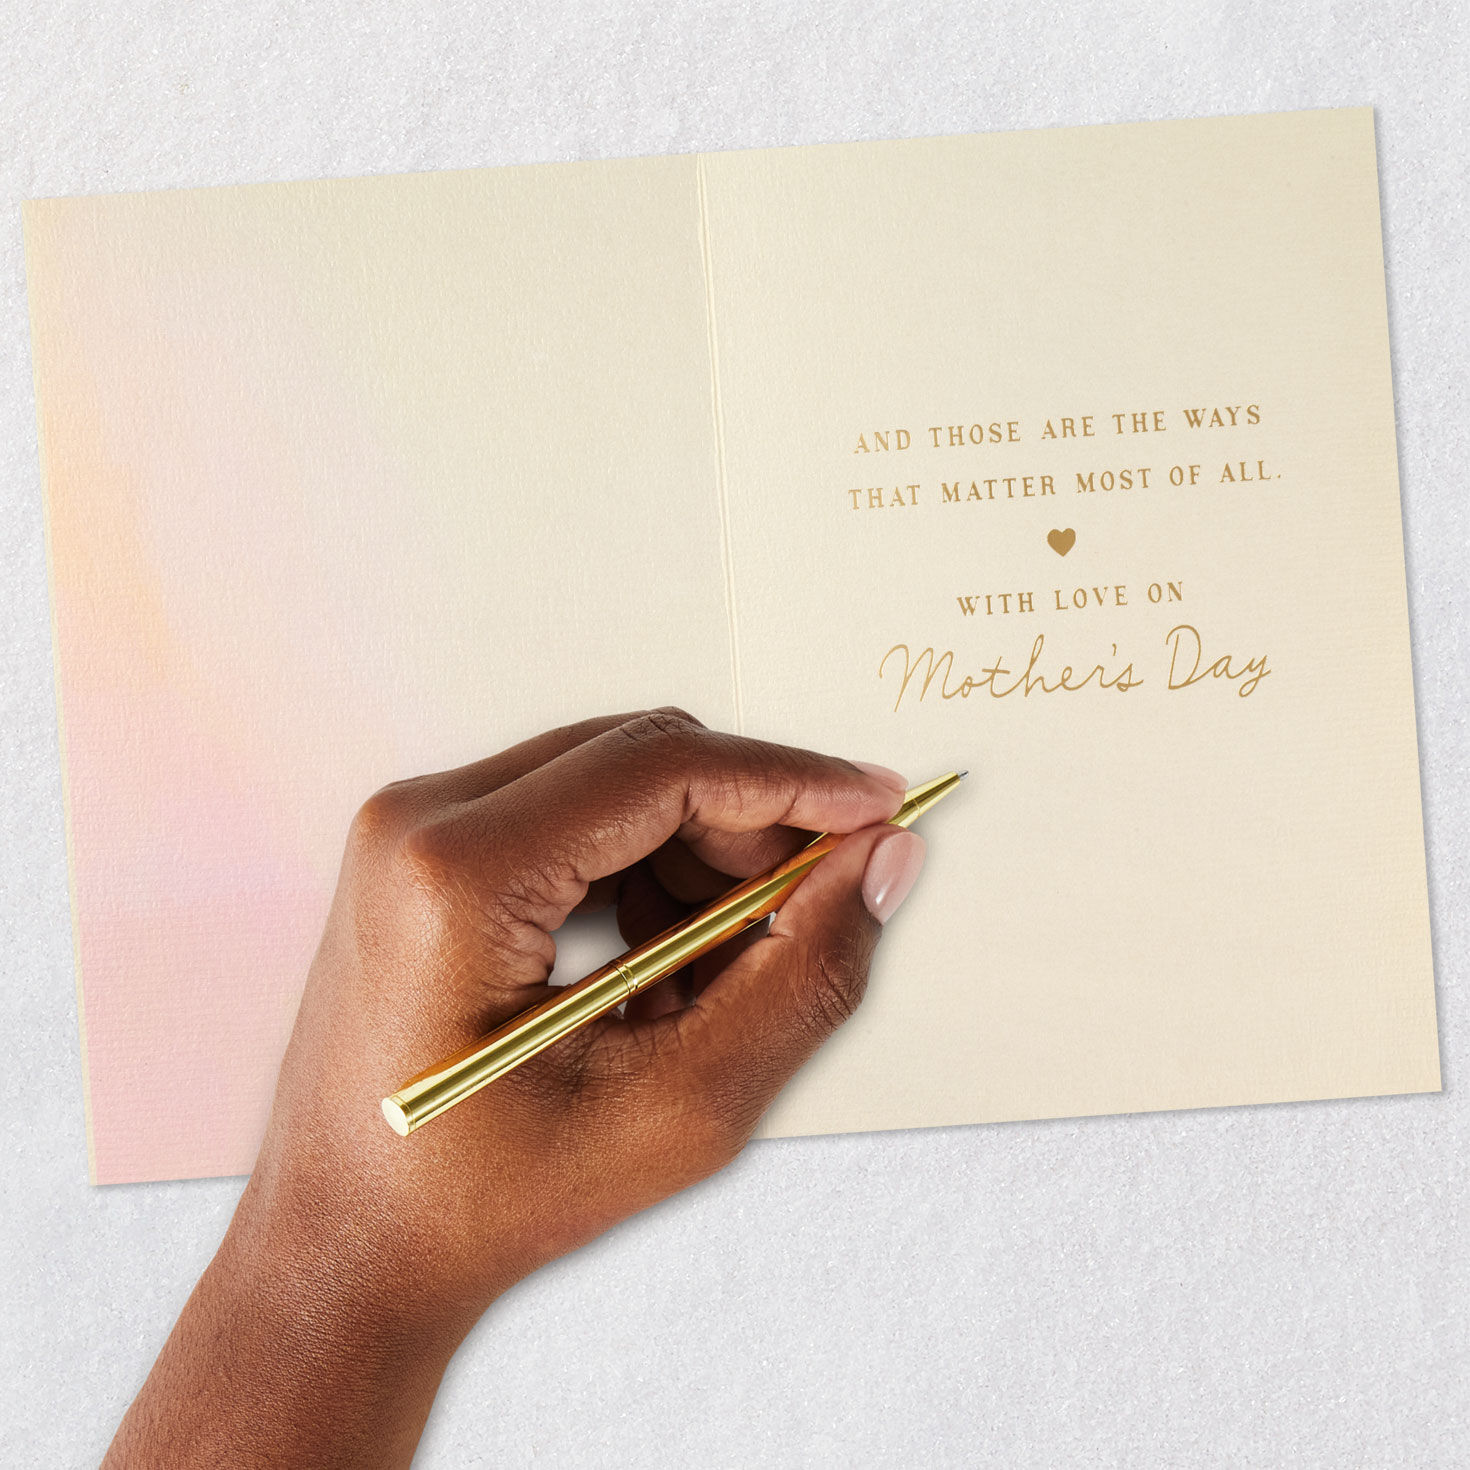 AND THOSE ARE THE WAYS
THAT MATTER MOST OF ALL.
WITH LOVE ON
Mother's Day